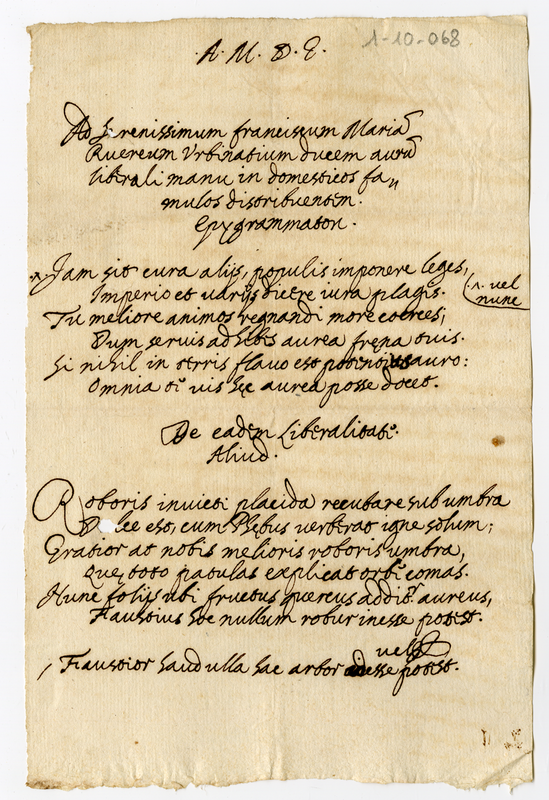 A. M. D. G.
1-10-068
Ad Serenissimum franciscum Mariã
Ruereum Vrbinatium ducem aurũ
liberali manu in domesticos fa
mulos distribuentem.
Epygrammaton.
Jam sit cura alijs, populis imponere leges,
Imperio et varijs dicere iura plagis.
.1. vel
nunc
Tu meliore animos regnandi more coerces;
Dum seruis adhibes aurea fręna tuis.
Si nihil in terris flauo est potentius auro:
Omnia tĩ vis hęc aurea posse docet.
De eadem Liberalitate.
Aliud.
Roboris inuicti placida recubare sub umbra
Dulce est, cum Phębus verberat igne solum;
Gratior at nobis melioris roboris umbra,
Quę toto patulas explicat orbe comas.
Nunc folijs ubi fructus quercus addit aureus,
Faustius hoc nullum robur inesse potest.
vel
Faustior haud ulla hac arbor adesse potest.